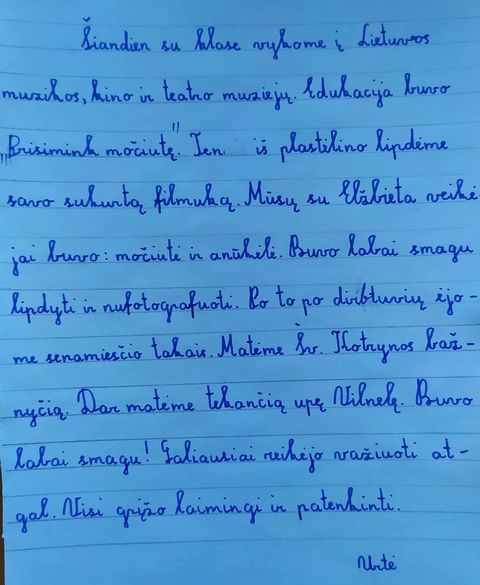 Šiandien su klase vykome į Lietuvos
muzikos, kino ir teatro muziejų. Edukacija buvo
„Prisimink močiutę." Ten iš plastilino lipdėme
savo sukurtą filmuką. Mūsų su Elžbieta veikė-
jai buvo: močiutė ir anūkėlė. Buvo labai smagu
lipdyti ir nufotografuoti. Po to po dirbtuvių ėjo-
me senamiesčio takais. Matėme Šv. Kotrynos baž-
nyčią. Dar matėme tekančią upę Vilnelę. Buvo
labai smagu! Galiausiai reikėjo važiuoti at-
gal. Visi grįžo laimingi ir patenkinti.
Urtė